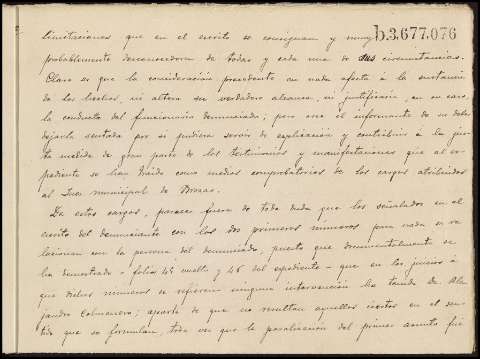 limitaciones que en el escrito se consignan y muy
b.3.677.076
probablemente desconocedora de todas y cada una de sus circunstancias.
Claro es que la consideración precedente en nada afecta á la sustancia
de los hechos, ni altera su verdadero alcance, ni justificaria, en su caso,
la conducta del funcionario denunciado; pero cree el informante de su deber
dejarla sentada por si pudiera servir de explicación y contribuir á la jus-
ta medida de gran parte de los testimonios y manifestaciones que al ex-
pediente se han traido como medios comprobatorios de los cargos atribuidos
al Juez municipal de Brozas.
De estos cargos, parece fuera de toda duda que los señalados en el
escrito del denunciante con los dos primeros números para nada se re-
lacionan con la persona del denunciado, puesto que documentalmente se
ha demostrado - folios 45 vuelto y 46 del expediente - que en los juicios á
que dichos números se refieren ninguna intervención ha tenido D. Ale-
jandro Colmenero; aparte de que no resultan aquellos ciertos en el sen-
tido que se formulan, toda vez que la paralización del primer asunto fué